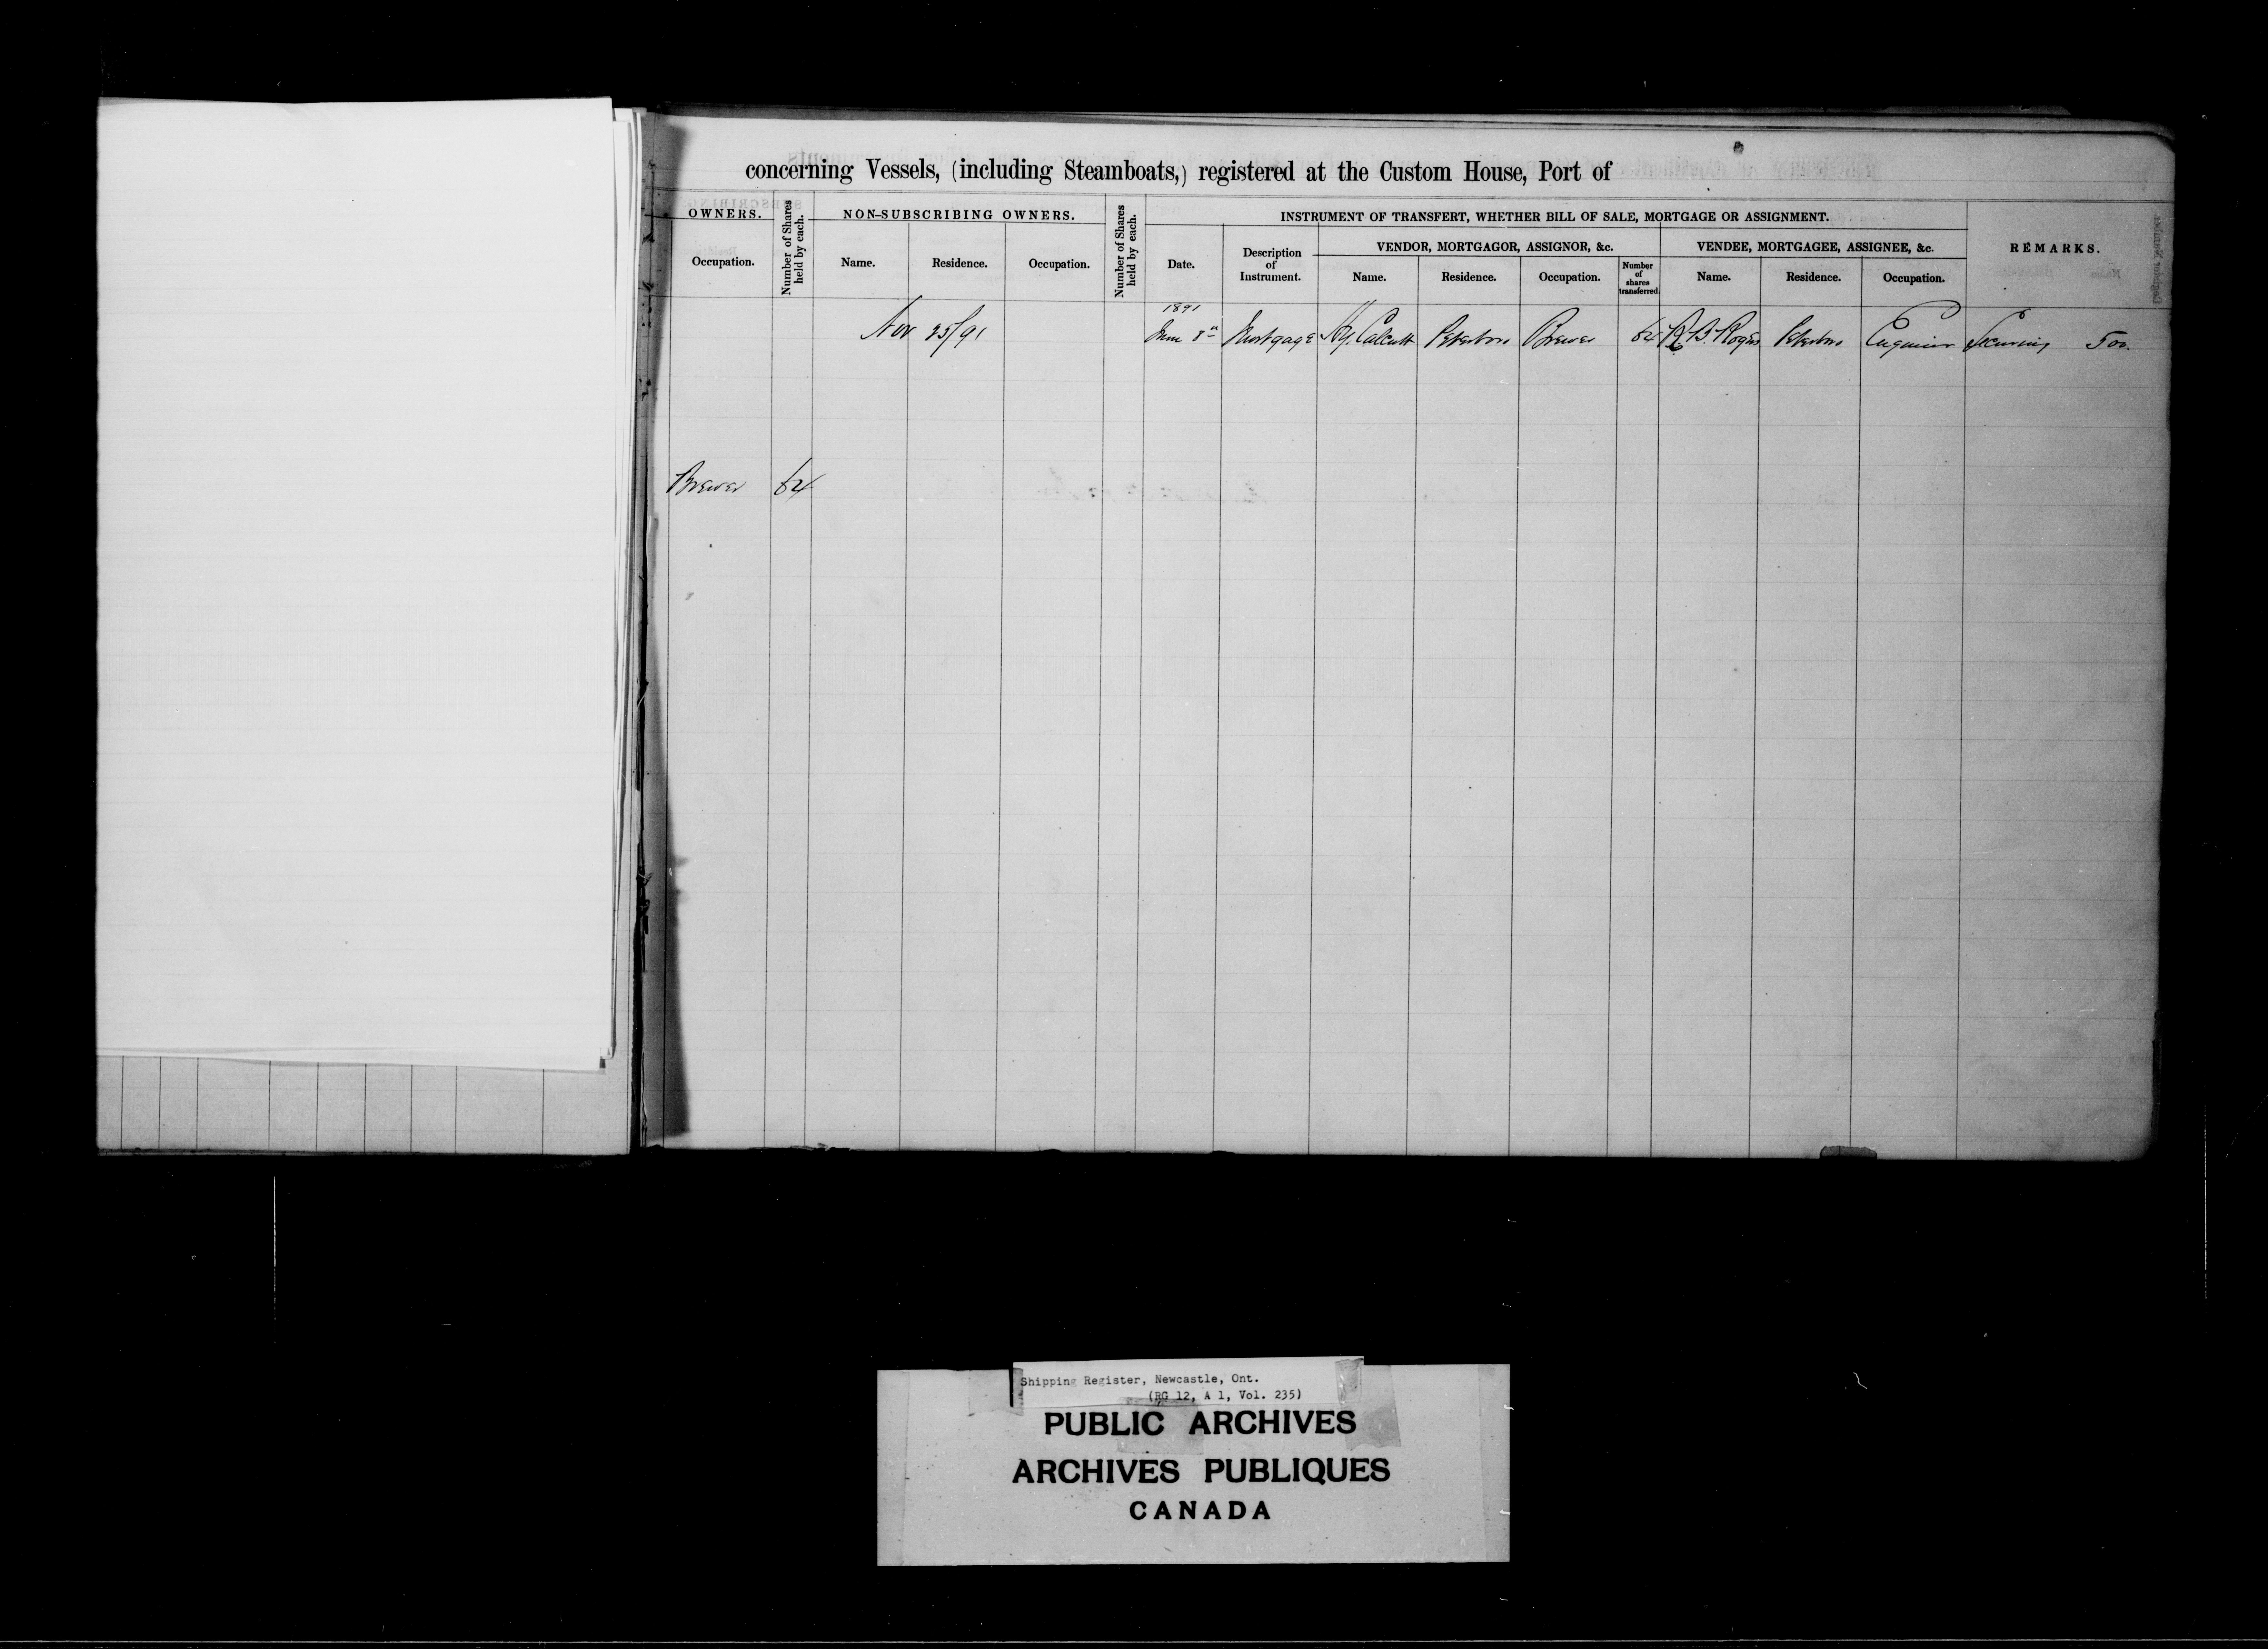 concerning Vessels, (including Steamboats,) registered at the Custom House, Port of
OWNERS.
Number of Shares held by each.
NON-SUBSCRIBING OWNERS.
Number of Shares held by each.
INSTRUMENT OF TRANSFERT, WHETHER BILL OF SALE, MORTGAGE OR ASSIGNMENT.
REMARKS.
VENDOR, MORTGAGOR, ASSIGNOR, &c.
VENDEE, MORTGAGEE, ASSIGNEE, &c.
Occupation.
Name.
Residence.
Occupation.
Date.
Description of Instrument.
Name.
Residence.
Occupation.
Number of shares transferred.
Name.
Residence.
Occupation.
1891
Nov 25/91 8th Mortgage Hy. Calcutt Peterboro Brewer 64 R. B. Rogers Peterboro Engineer Securing 500.
Brewer 64
Shipping Register, Newcastle, Ont.
(RG 12, A 1, Vol. 235)
PUBLIC ARCHIVES
ARCHIVES PUBLIQUES
CANADA